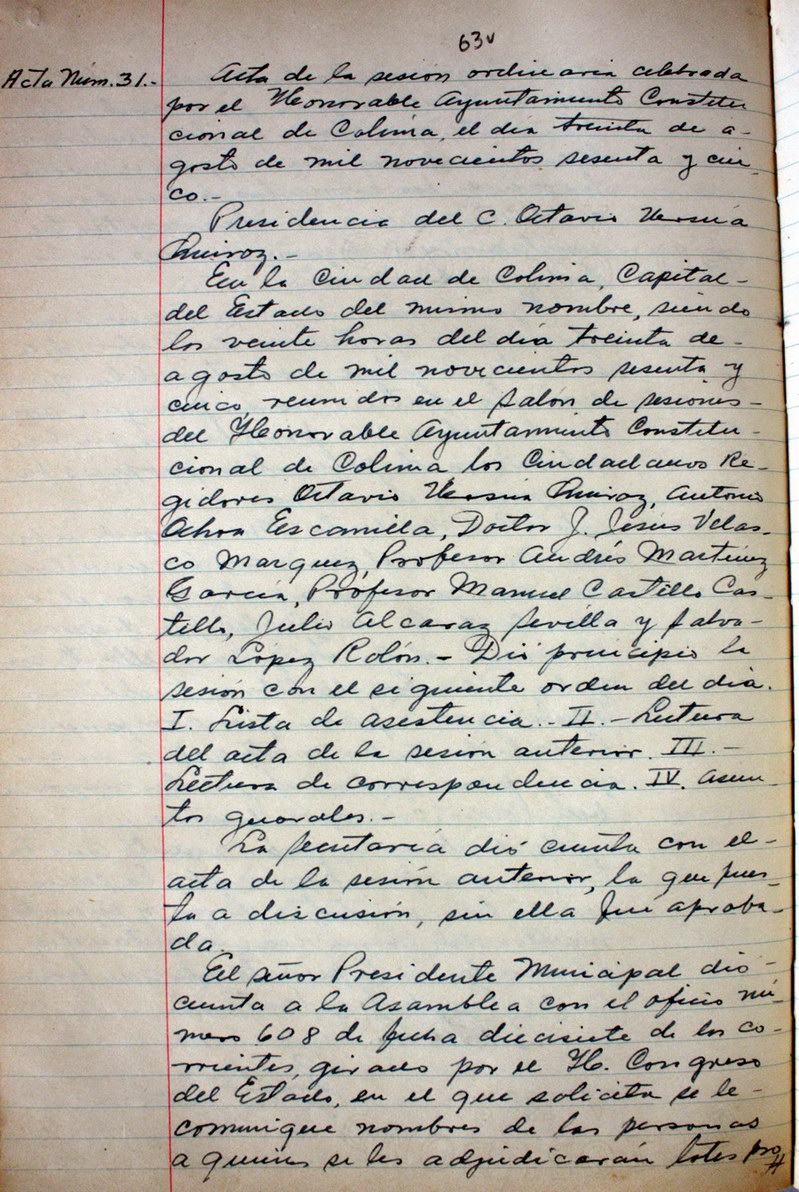 63v
Acta Núm. 31.-
Acta de la sesión ordinaria celebrada
por el Honorable Ayuntamiento Constitu
cional de Colima, el día treinta de a-
gosto de mil novecientos sesenta y cin-
co.-
Presidencia del C. Octavio Urzúa
Quiroz.-
En la Ciudad de Colima, Capital-
del Estado del mismo nombre, siendo
las veinte horas del día treinta de-
agosto de mil novecientos sesenta y
cinco, reunidos en el salón de sesiones-
del Honorable Ayuntamiento Constitu-
cional de Colima los Ciudadanos Re-
gidores Octavio Urzúa Quiroz, Antonio
Ochoa Escamilla, Doctor J. Jesús Velas-
co Marquez, Profesor Andrés Martínez
García, Profesor Manuel Castillo Cas-
tillo, Julio Alcaraz Sevilla y Salva-
dor López Rolón.- Dió principio la
sesión con el siguiente orden del día.
I. Lista de asistencia.- II.- Lectura
del acta de la sesión anterior. III.-
Lectura de correspondencia. IV. Asun-
tos generales.-
La Secretaría dió cuenta con el-
acta de la sesión anterior, la que pues-
ta a discusión, sin ella fué aproba-
da.
El señor Presidente Municipal dió-
cuenta a la Asamblea con el oficio nú-
mero 608 de fecha diecisiete de los co-
rrientes, girado por el H. Congreso
del Estado, en el que solicita se le-
comunique nombres de las personas
a quienes se les adjudicarán lotes pro